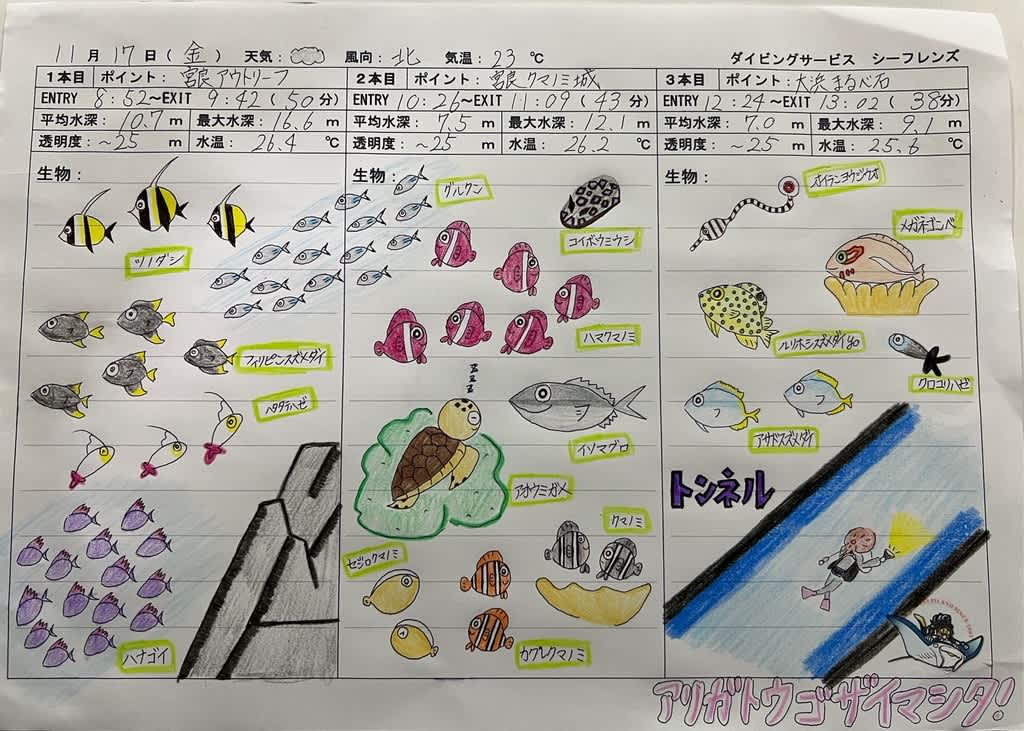 11月17日(金) 天気: 風向:北 気温:23℃ ダイビングサービス シーフレンズ
1本目 ポイント:宮良アウトリーフ
ENTRY 8:52~EXIT 9:42(50分)
平均水深:10.7m 最大水深:16.6m
透明度:~25m 水温:26.4℃
生物:
ツノダシ
フィリピンスズメダイ
ハタタテハゼ
ハナゴイ
2本目 ポイント:宮良クマノミ城
ENTRY 10:26~EXIT 11:09(43分)
平均水深:7.5m 最大水深:12.1m
透明度:~25m 水温:26.2℃
生物:
グルクン
コイボウミウシ
ハマクマノミ
zzz
イソマグロ
アオウミガメ
クマノミ
セジロクマノミ
カクレクマノミ
3本目 ポイント:大浜まるべ石
ENTRY 12:24~EXIT 13:02(38分)
平均水深:7.0m 最大水深:9.1m
透明度:~25m 水温:25.6℃
生物:
オイランヨウジウオ
メガネゴンベ
ルリホシスズメダイyg
クロユリハゼ
アサドスズメダイ
トンネル
アリガトウゴザイマシタ!